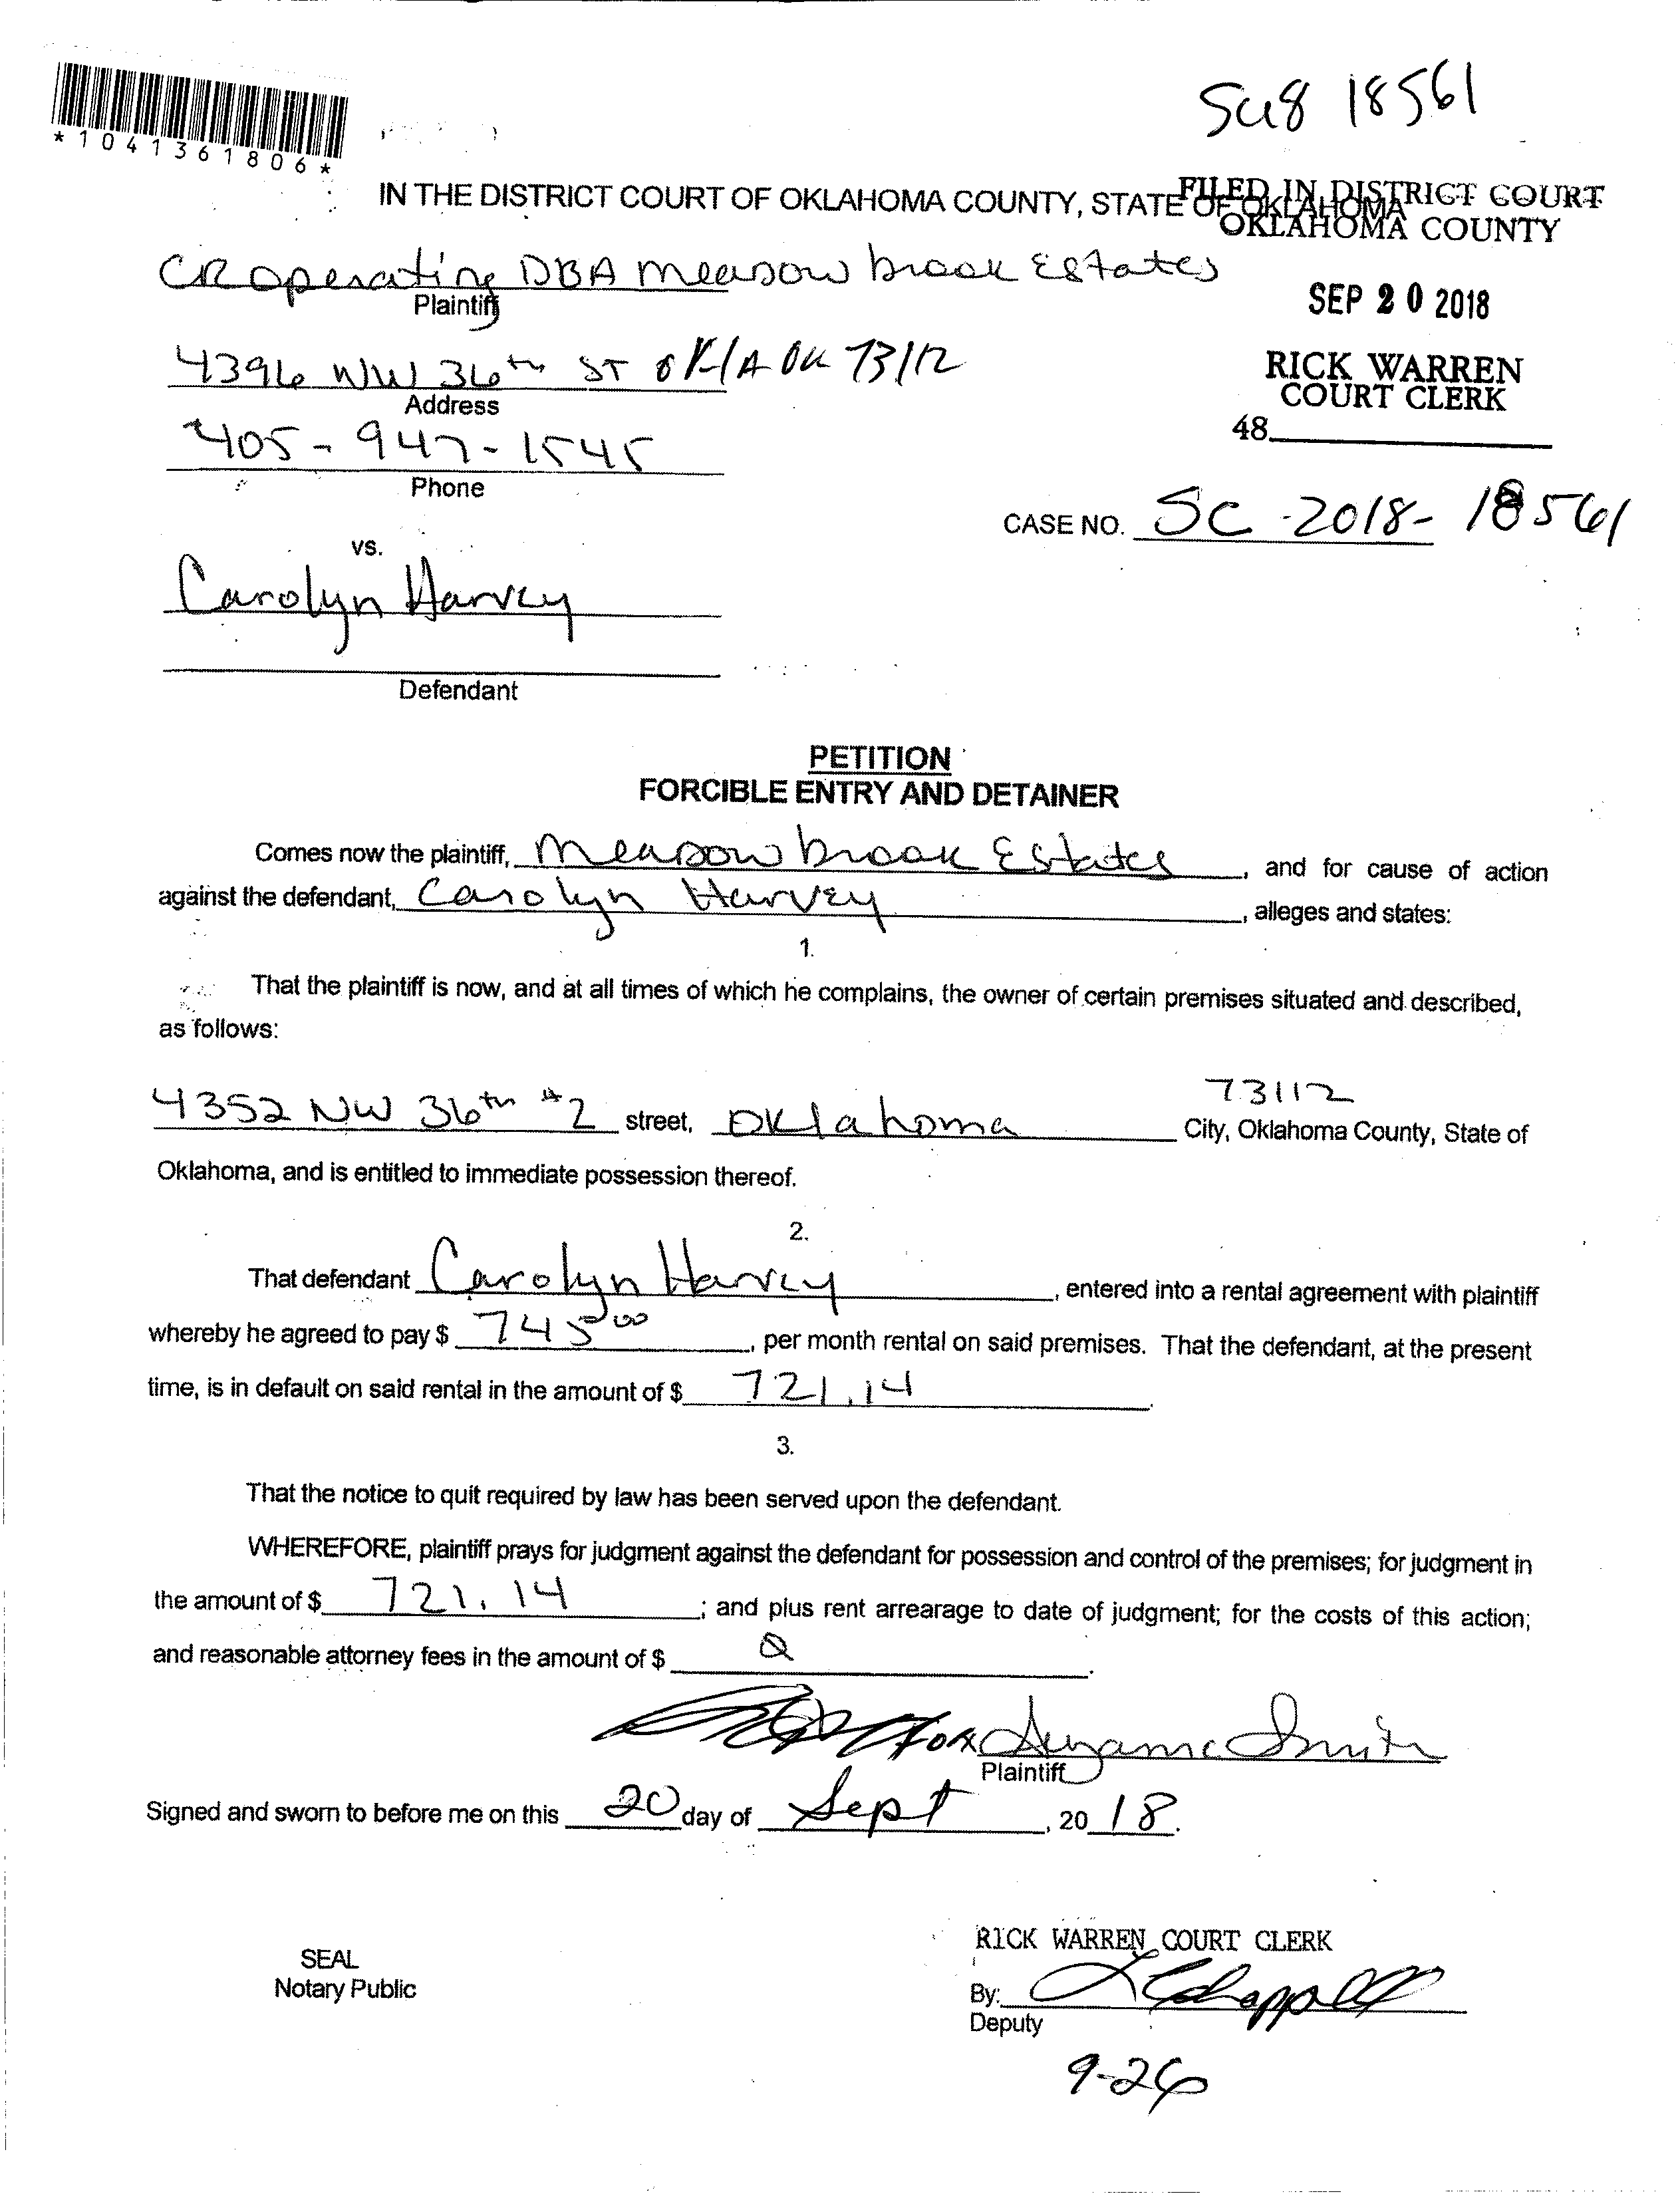 SC18 18561
*1041361806*
IN THE DISTRICT COURT OF OKLAHOMA COUNTY, STATE OF OKLAHOMA
FILED IN DISTRICT COURT
OKLAHOMA COUNTY
CR operating DBA Meadowbrook Estates
Plaintiff
SEP 20 2018
4396 NW 36th ST OKLA OK 73112
Address
RICK WARREN
COURT CLERK
48
405-947-1545
Phone
CASE NO. SC-2018-18561
vs.
Carolyn Harvey
Defendant
PETITION
FORCIBLE ENTRY AND DETAINER
Comes now the plaintiff, Meadowbrook Estates, and for cause of action
against the defendant, Carolyn Harvey, alleges and states:
1.
That the plaintiff is now, and at all times of which he complains, the owner of certain premises situated and described,
as follows:
73112
4352 NW 36th #2 street, Oklahoma City, Oklahoma County, State of
Oklahoma, and is entitled to immediate possession thereof.
2.
That defendant Carolyn Harvey, entered into a rental agreement with plaintiff
whereby he agreed to pay $ 745.00, per month rental on said premises. That the defendant, at the present
time, is in default on said rental in the amount of $ 721.14.
3.
That the notice to quit required by law has been served upon the defendant.
WHEREFORE, plaintiff prays for judgment against the defendant for possession and control of the premises; for judgment in
the amount of $ 721.14; and plus rent arrearage to date of judgment; for the costs of this action;
and reasonable attorney fees in the amount of $ 0.
for Suzanne Smith
Plaintiff
Signed and sworn to before me on this 20 day of Sept, 2018.
RICK WARREN COURT CLERK
SEAL
Notary Public
By: Chappell
Deputy
9-26